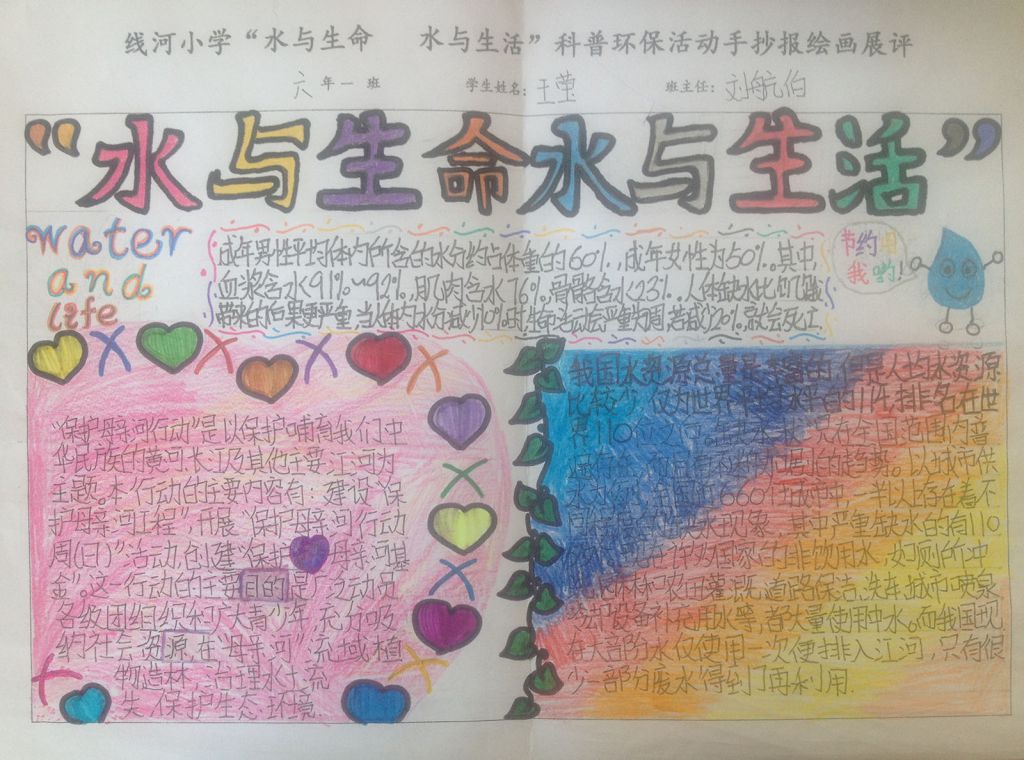 线河小学“水与生命 水与生活”科普环保活动手抄报绘画展评
六年一班 学生姓名:王莹 班主任:刘航伯
“水与生命水与生活”
water
and
life
成年男性平均体内所含的水分约占体重的60%,成年女性为50%。其中,
血浆含水91%~92%,肌肉含水76%,骨骼含水23%。人体缺水比饥饿
带来的后果更严重,当人体内水分减少10%时,生命活动会严重,若减少20%,就会死亡.
节约用
我哟!
“保护母亲河行动”是以保护哺育我们中
华民族的黄河、长江及其他主要江河为
主题。本行动的主要内容有:建设“保
护母亲河工程”开展“保护母亲河行动
周(日)”活动,创建“保护母亲河基
金”。这一行动的主要目的是广泛动员
各级团组织和广大青少年,充分吸
纳社会资源在“母亲河”流域植
物造林,治理水土流
失,保护生态环境.
我国水资源总量是丰富的,但是人均水资源
比较少,仅为世界平均水平的1/4,排名在世
界110位之后。缺水
在全国范围内普
的趋势。以城市供
水为例,全国近660个城市中,一半以上存在着不
同程度的缺水现象,其中严重缺水的有110
国家的非饮用水,如厕所冲
林和农田灌溉,道路保洁,洗车,城市喷泉
设备补充用水等,都大量使用中水。而我国现
在大部分水仅使用一次便排入江河,只有很
少一部分废水得到了再利用.